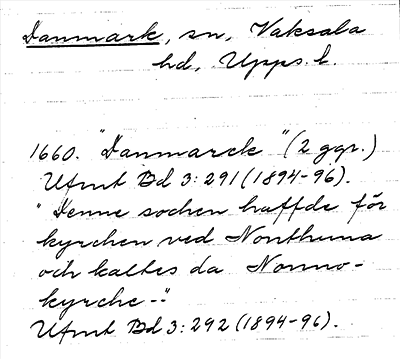 Danmark, sn, Vaksala
hd, Upps. l.
1660. "Danmarck" (2 ggr.)
Ufmt Bd 3: 291 (1894-96).
"Denne sochen haffde för
kyrchen ved Nonthuna
och kaltes da Nonno-
kyrche -"
Ufmt Bd 3: 292 (1894-96).